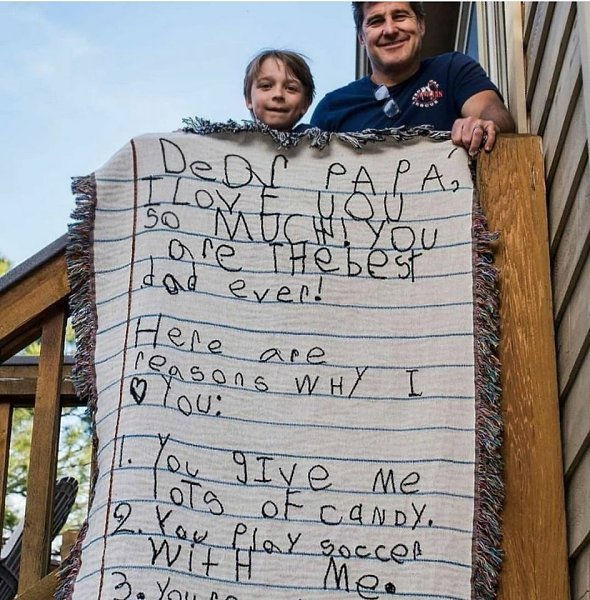 Dear PAPA,
I LOVE YOU
SO MUCH! YOU
are THE best
dad ever!
Here are
reasons WHY I
♡ YOU:
1. You gIve Me
loTs oF caNDY.
2. You Play soccer
WiTH Me.
3. You